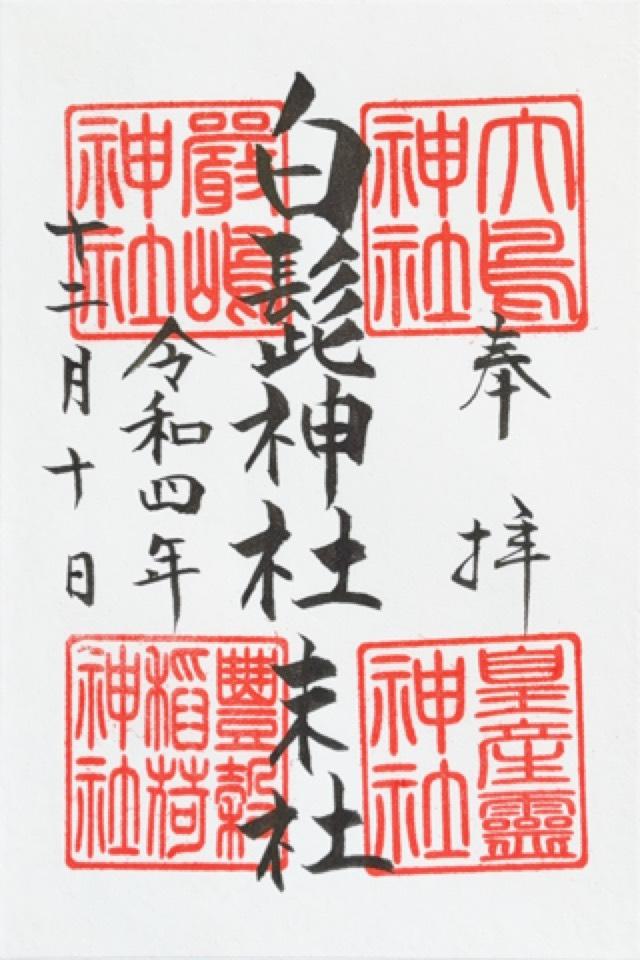 奉拝
大鳥神社
皇産靈神社
白髭神社末社
嚴嶋神社
豐穀稲荷神社
令和四年
十二月十日